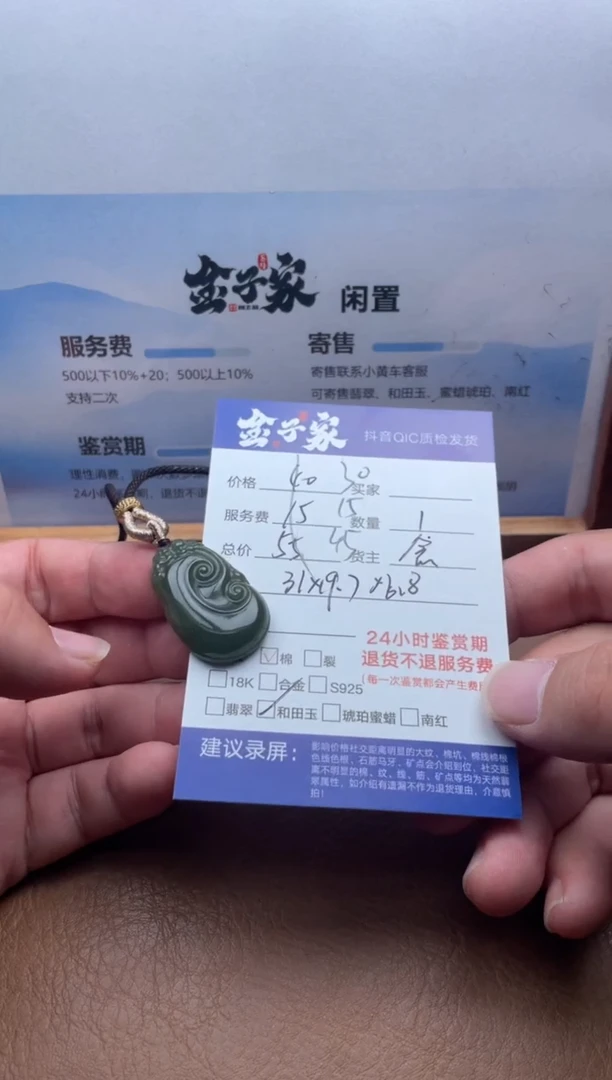 金子家 闲置
服务费
500以下10%+20；500以上10%
支持二次
寄售
寄售联系小黄车客服
可寄售翡翠、和田玉、蜜蜡琥珀、南红
鉴赏期
理性消费，
24小时
金子家 抖音QIC质检发货
价格 40 30 买家
服务费 15 15 数量 1
总价 55 45 货主
31×19.7×6.8
棉 裂
18K 合金 S925
翡翠 和田玉 琥珀蜜蜡 南红
24小时鉴赏期
退货不退服务费
（每一次鉴赏都会产生费
建议录屏：
影响价格社交距离明显的大纹、棉坑、棉线棉根
色线色根、石筋马牙、矿点会介绍到位，社交距
离不明显的棉、纹、线、筋、矿点等均为天然翡
翠属性，如介绍有遗漏不作为退货理由，介意慎
拍！